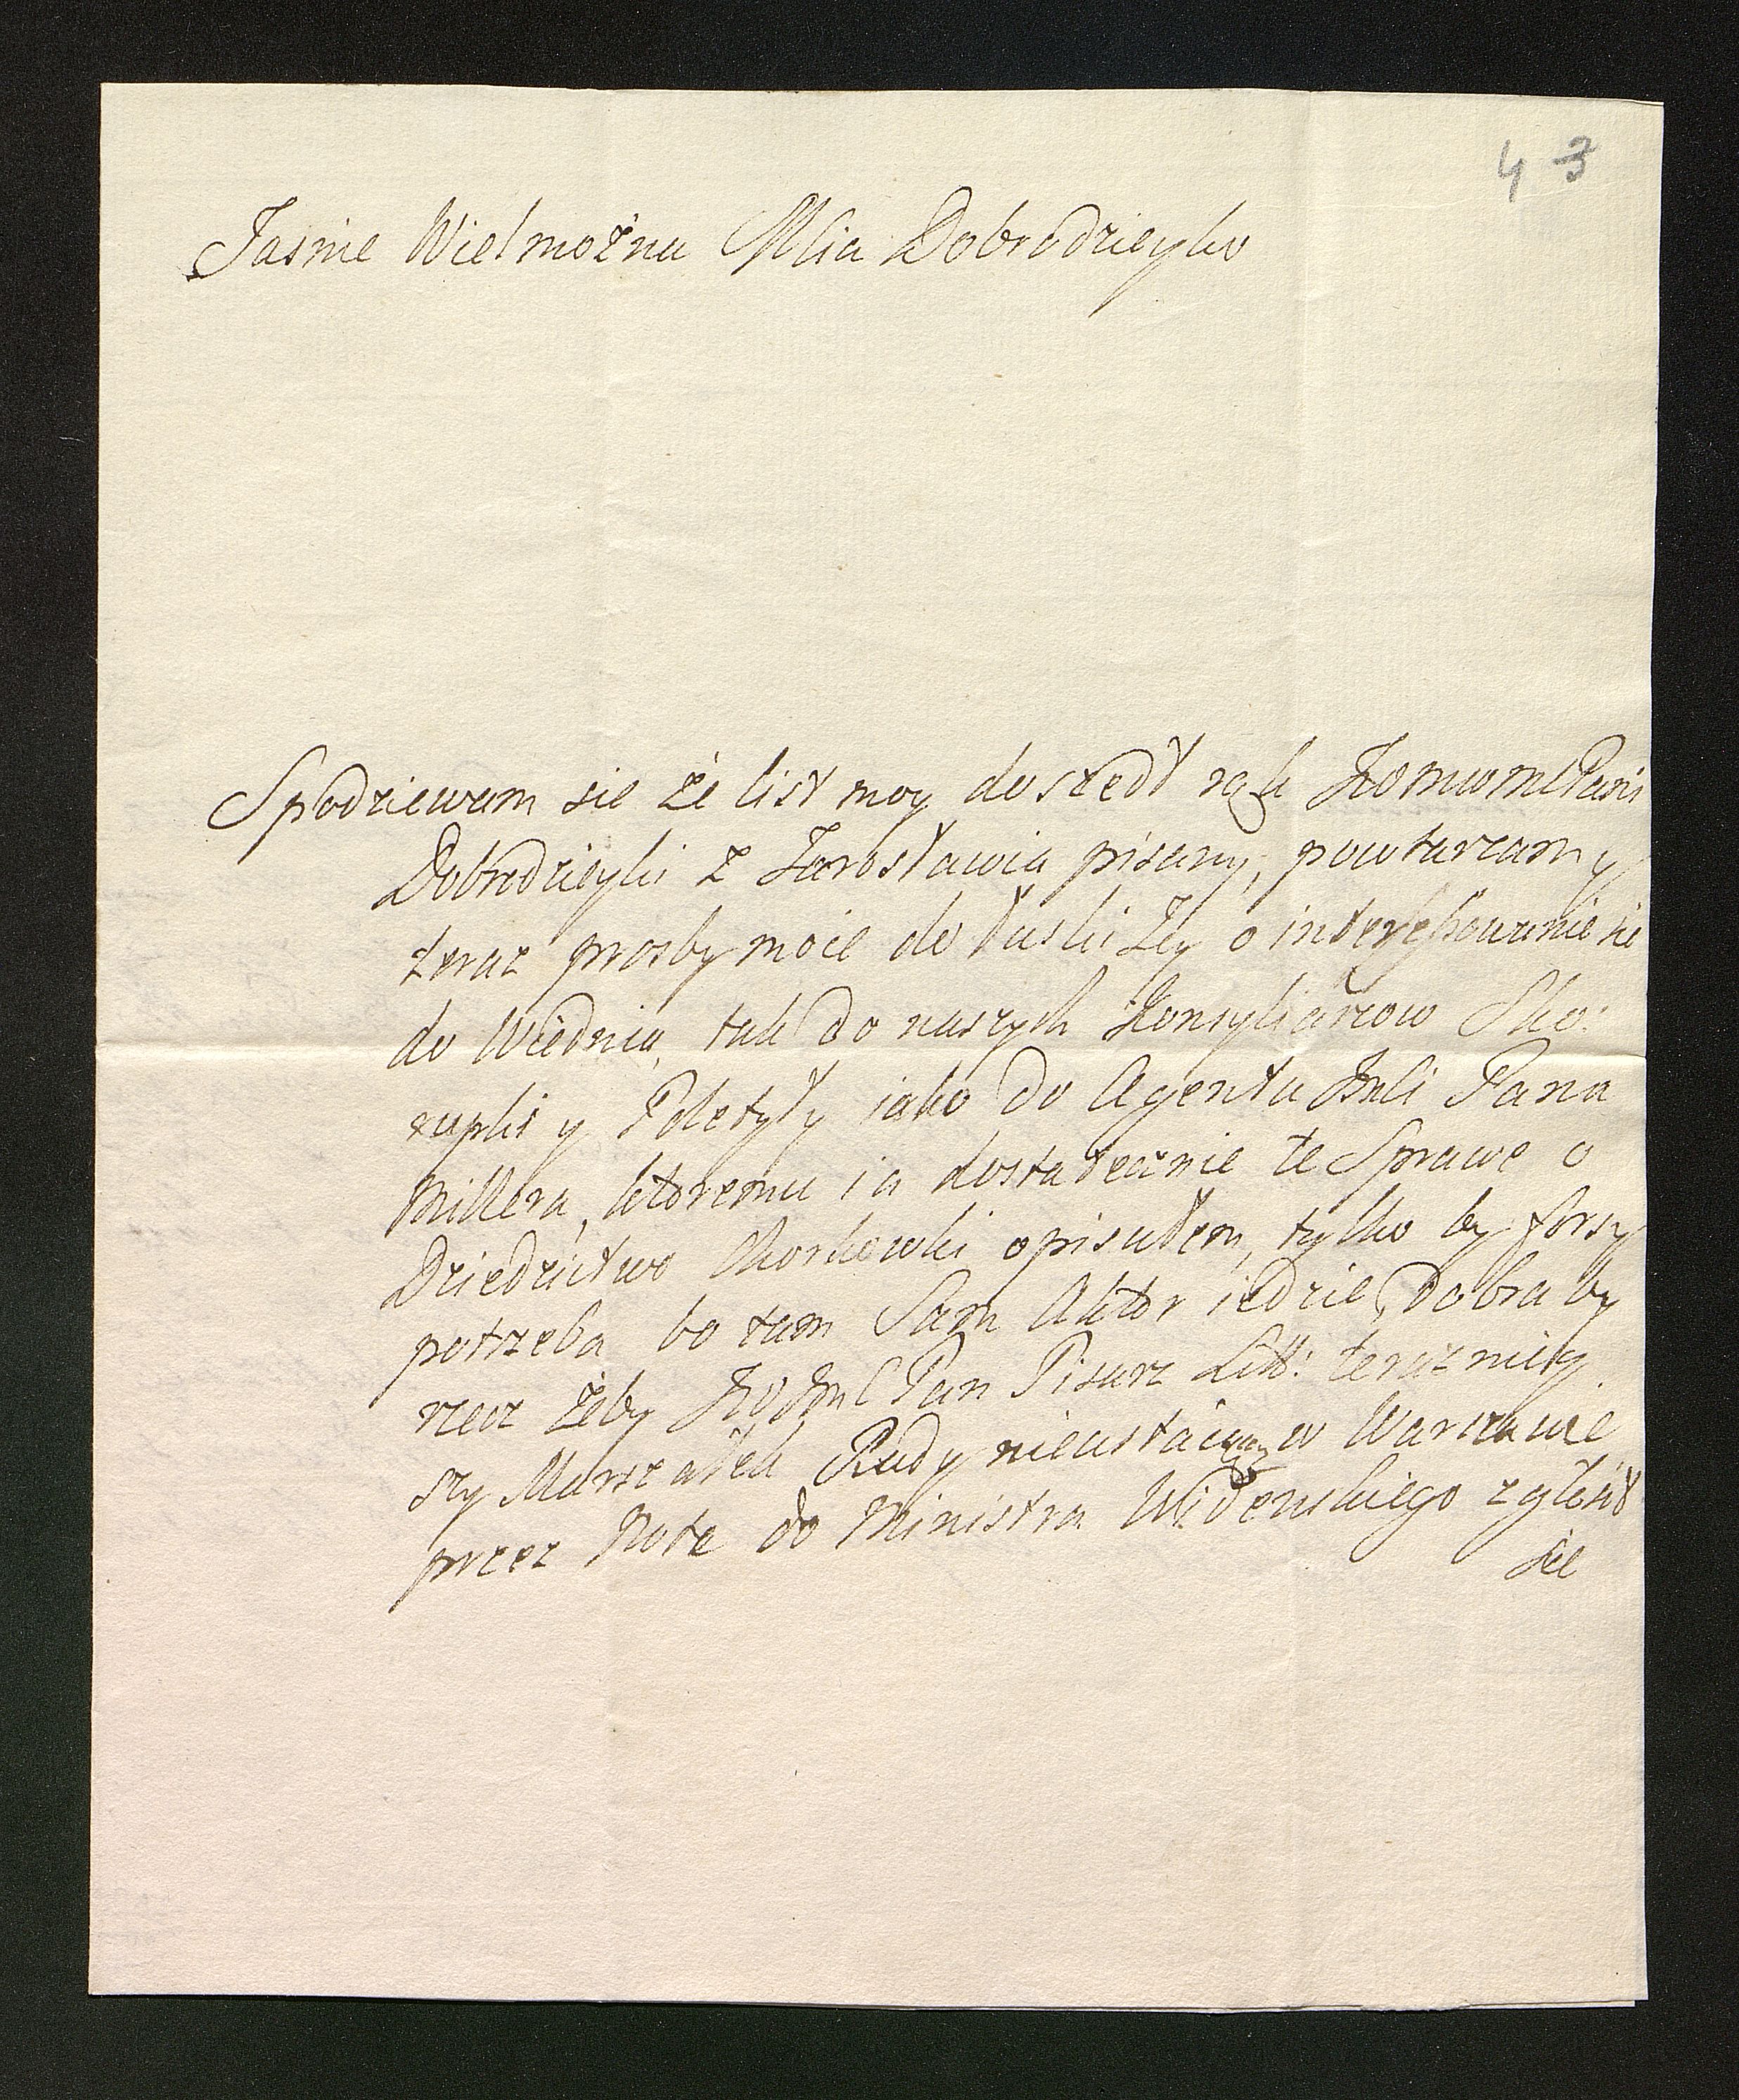 43
Jasnie Wielmożna Mcia Dobrodzieyko
Spodziewam sie że list moy doszedł rąk JWmMPani
Dobrodzieyki z Jarosławia pisany, powtarzam y
teraz prosby moie do łaski Jey o interessowanie sie
do Wiednia, tak do naszych Konsyliarzow Sko:
rupki y Poletyły iako do Agenta Imci Pana
Millera, ktoremu ia dostatecznie te Sprawe o
Dziedzictwo Morkowki opisałem, tylko by forsy
potrzeba bo tam Sam Aktor iedzie, dobra by
rzecz żeby JWJmC Pan Pisarz Litt: terazniey
szy Marszałek Rady nieustaiącey w Warszawie
przez Note do Ministra Widenskiego zgłosił
sie